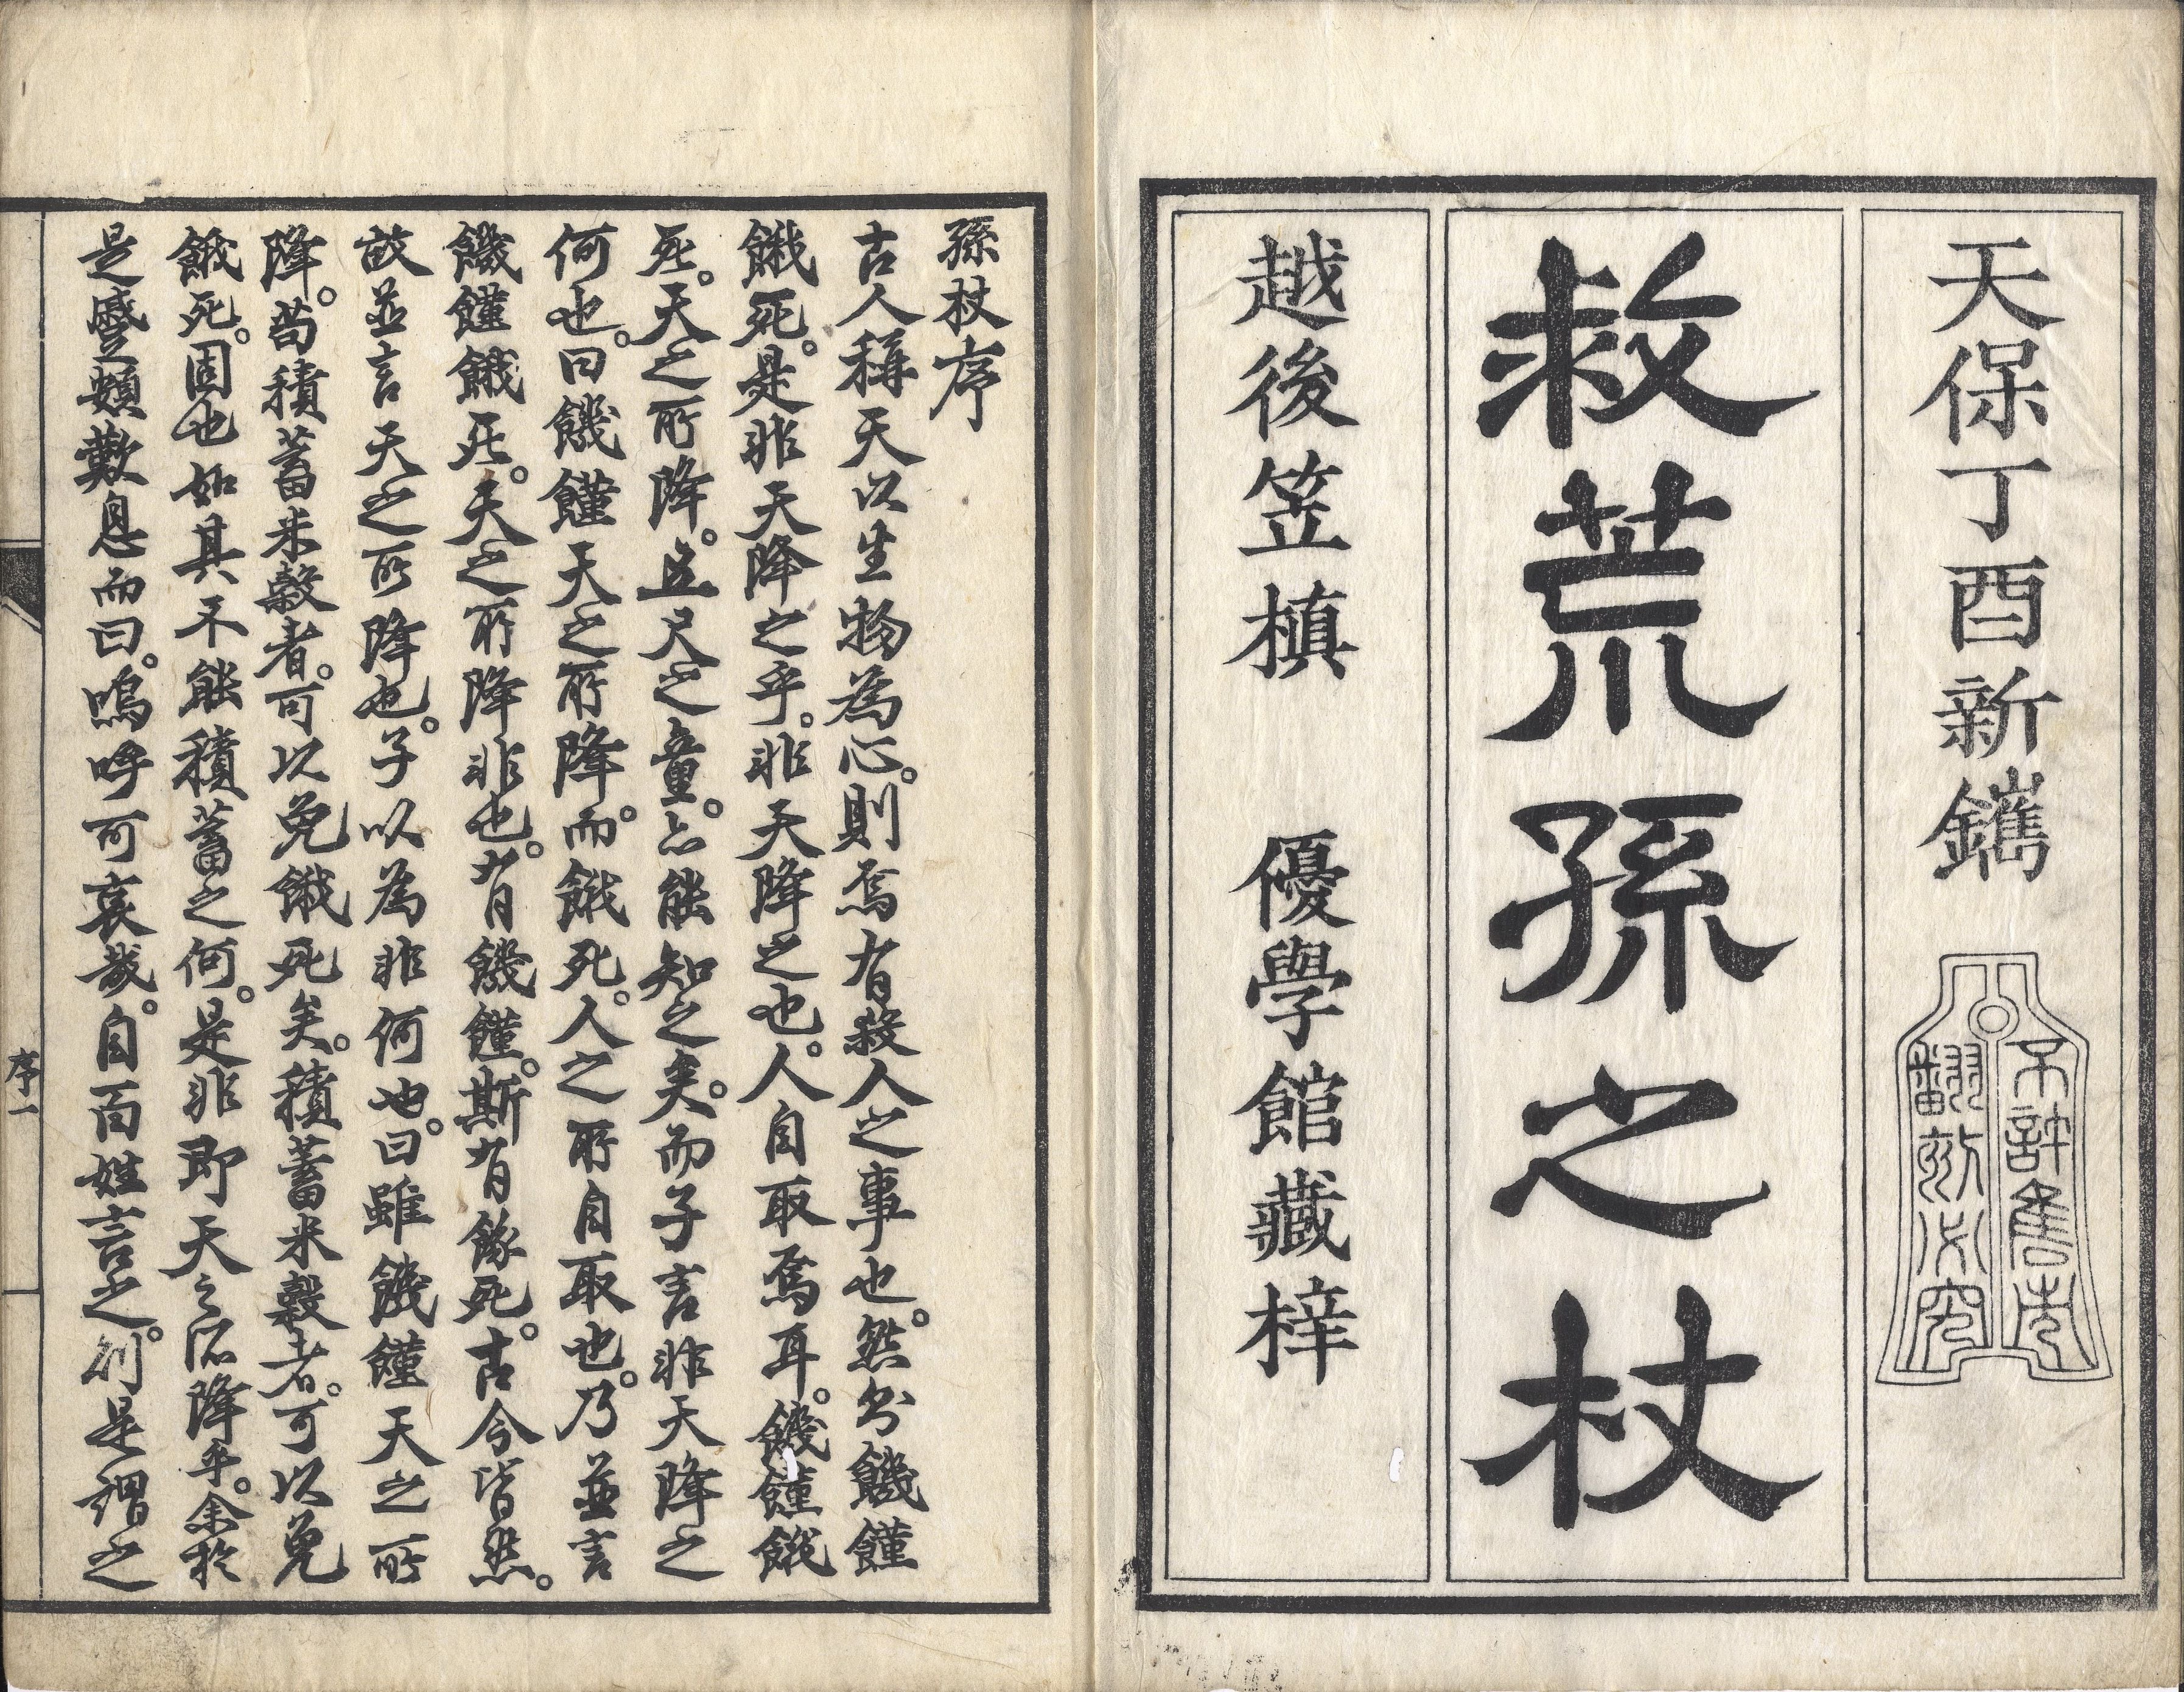 天保丁酉新鐫
不許售市
翻刻必究
救荒孫之杖
越後笠槙　優學館藏梓
孫杖序
古人稱天以生物為心。則焉有殺人之事也。然於饑饉
餓死。是非天降之乎。非天降之也。人自取焉耳。饑饉餓
死。天之所降。五尺之童。亦能知之矣。而子言非天降之
何也。曰饑饉天之所降。而餓死。人之所自取也。乃並言
饑饉餓死。天之所降非也。有饑饉。斯有餓死。古今皆然。
故並言天之所降也。子以為非何也。曰雖饑饉天之所
降。苟積蓄米穀者。可以免餓死矣。積蓄米穀者。可以免
餓死。固也如其不能積蓄之何。是非即天之所降乎。余於
是蹙頞歎息而曰。嗚呼可哀哉。自百姓言之。則是謂之
序一